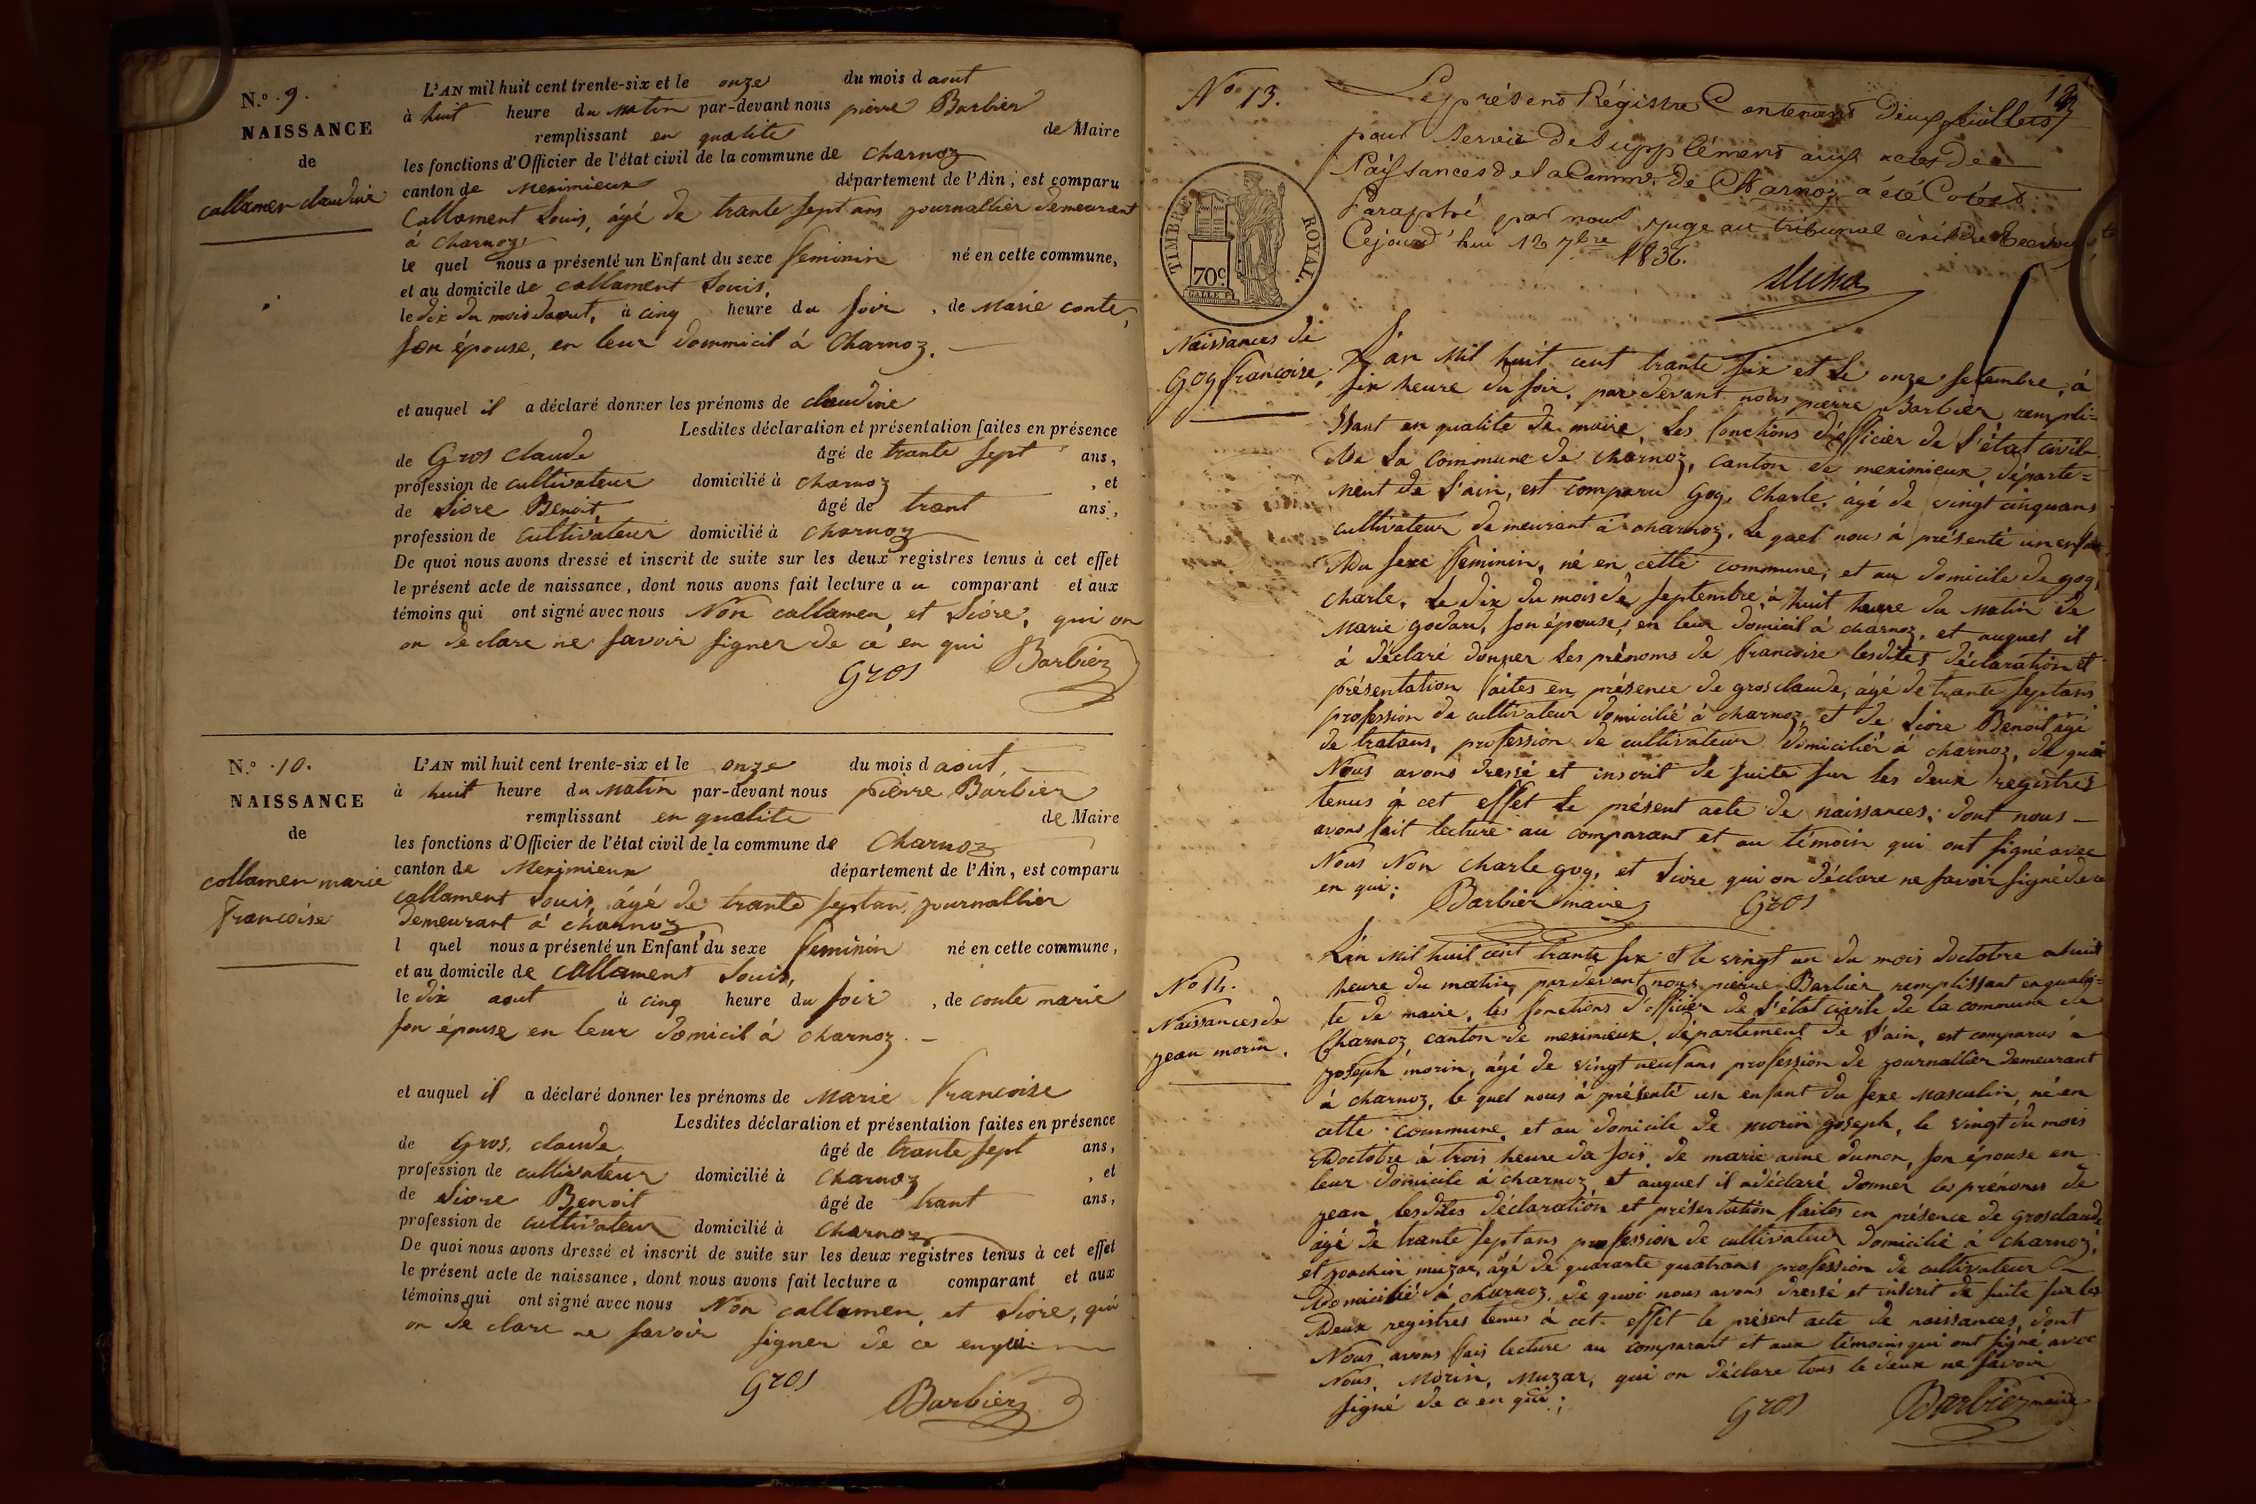 N.º 9.
NAISSANCE
de
callamen claudine
L'AN mil huit cent trente-six et le onze du mois d aout
à huit heure du matin par-devant nous pierre Barbier
remplissant en qualite de Maire
les fonctions d'Officier de l'état civil de la commune de charnoz
canton de meximieux département de l'Ain, est comparu
Callament Louis, âgé de trante sept ans journallier demeurant
à charnoz,
le quel nous a présenté un Enfant du sexe feminin né en cette commune,
et au domicile de callament Louis,
le dix du mois daout, à cinq heure du soir, de Marie conte,
son épouse, en leur dommicil à Charnoz.
et auquel il a déclaré donner les prénoms de claudine
Lesdites déclaration et présentation faites en présence
de Gros claude âgé de trante sept ans,
profession de cultivateur domicilié à charnoz, et
de Livre Benoit, âgé de trant ans,
profession de cultivateur domicilié à charnoz
De quoi nous avons dressé et inscrit de suite sur les deux registres tenus à cet effet
le présent acte de naissance, dont nous avons fait lecture a u comparant et aux
témoins qui ont signé avec nous Non callamen, et Livre, qui on
on declare ne savoir signer de cé en qui
Gros Barbier
N.º 10.
NAISSANCE
de
collamen marie
francoise
L'AN mil huit cent trente-six et le onze du mois d aout,
à huit heure du matin par-devant nous pierre Barbier
remplissant en qualite de Maire
les fonctions d'Officier de l'état civil de la commune de Charnoz
canton de Meximieux département de l'Ain, est comparu
callament Louis, âgé de trante septan, journallier
demeurant à charnoz,
l quel nous a présenté un Enfant du sexe feminin né en cette commune,
et au domicile de Callament Louis,
le dix aout à cinq heure du soir, de conte marie
son épouse en leur domicil à charnoz.
et auquel il a déclaré donner les prénoms de Marie francoise
Lesdites déclaration et présentation faites en présence
de Gros, claude, âgé de trante sept ans,
profession de cultivateur domicilié à charnoz, et
de Livre Benoit âgé de trant ans,
profession de cultivateur domicilié à charnoz
De quoi nous avons dressé et inscrit de suite sur les deux registres tenus à cet effet
le présent acte de naissance, dont nous avons fait lecture a comparant et aux
témoins qui ont signé avec nous Non callamen, et Livre, qui
on de clare ne savoir signer de ce enqui
Gros Barbier
Nº 13.
Le présent Régistre Contenant deux feuillets
pour servir de supplément aux actes de
Naissances de la Comm. de Charnoz a été Coté et
Paraphé par nous Juge au tribunal civil de
Cejourd'hui 12 7bre 1836.
TIMBRE ROYAL.
70c
Naissances de
Gog francoise,
L'an Mil huit cent trante six et Le onze setembre, à
six heure du soir, par devant nous pierre Barbier rempli=
ssant en qualite de maire, Les fonctions d'officier de L'état civil
De La Commune de charnoz, canton de meximieux, départe=
ment de L'ain, est comparu Gog, Charle, âgé de vingt cinquans
cultivateur demeurant à charnoz, Le quel nous à présenté un enfan
Du sexe feminin, né en cette commune, et au domicile de gog,
charle, Le dix du mois de septembre, à huit heure du matin de
Marie godard, son épouse, en leur domicil à charnoz, et auquel il
à déclaré donner Les prénoms de francoise lesdites déclaration et
présentation faites en présence de gros claude, âgé de trante septans
profession de cultivateur domicilié à charnoz, et de Livre Benoit âgé
de tratans, profession de cultivateur domicilier à charnoz, de quoi
Nous avons dressé et inscrit de suite sur les deux registres
tenus à cet effet Le présent acte de naissances, dont nous
avons fait lecture au comparant et au témoin qui ont signé avec
Nous Non Charle gog, et Livre qui on déclare ne savoir signé de ce
en qui;
Barbier maire Gros
Nº 14.
Naissances de
jean morin.
L'an Mil huit cent trante six et le vingt un du mois doctobre a huit
heure du matin, pardevant nous pierre Barbier remplissant en quali=
te de maire, les fonctions d'officier de L'état civile de la commune de
Charnoz, canton de meximieux, département de L'ain, est comparus a
joseph morin, âgé de vingt neufans profession de journallier demeurant
à charnoz, le quel nous à présenté un enfant du sexe Masculin, né en
cette commune, et au domicile de morin joseph, le vingt du mois
Doctobre à trois heure du soir, de marie anne dumon, son épouse en
leur domicile à charnoz et auquel il a déclaré donner les prénoms de
jean, lesdites déclaration et présentation faites en présence de gros claude
âgé de trante septans profession de cultivateur domicilié à charnoz,
et joachin muzar, âgé de quarante quatrans profession de cultivateur
Domicilié à charnoz, de quoi nous avons dressé et inscrit de suite sur les
Deux registres tenus à cet effet le présent acte de naissances, dont
Nous avons fais lecture au comparant et aux témoins qui ont signé avec
Nous, Morin, Muzar, qui on déclare tous le deux ne savoir
signé de ce en qui;
Gros Barbier maire